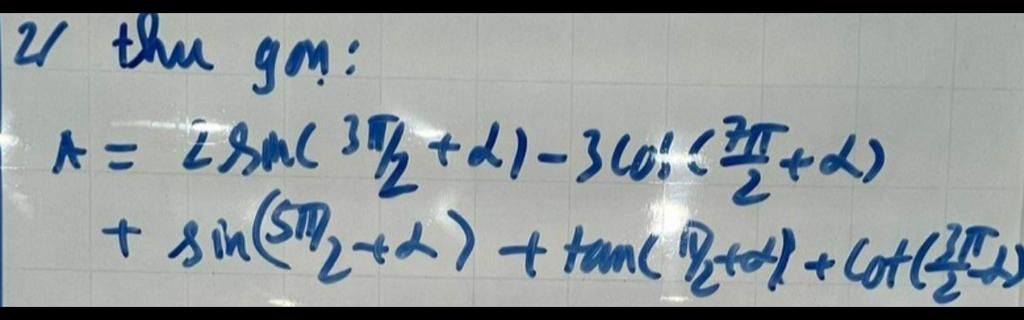 2/ thu gọn:
A = 2 sin( 3π/2 + α) - 3 cos( 7π/2 + α)
+ sin(5π/2 + α) + tan( π/2 + α) + cot( 3π/2 - α)